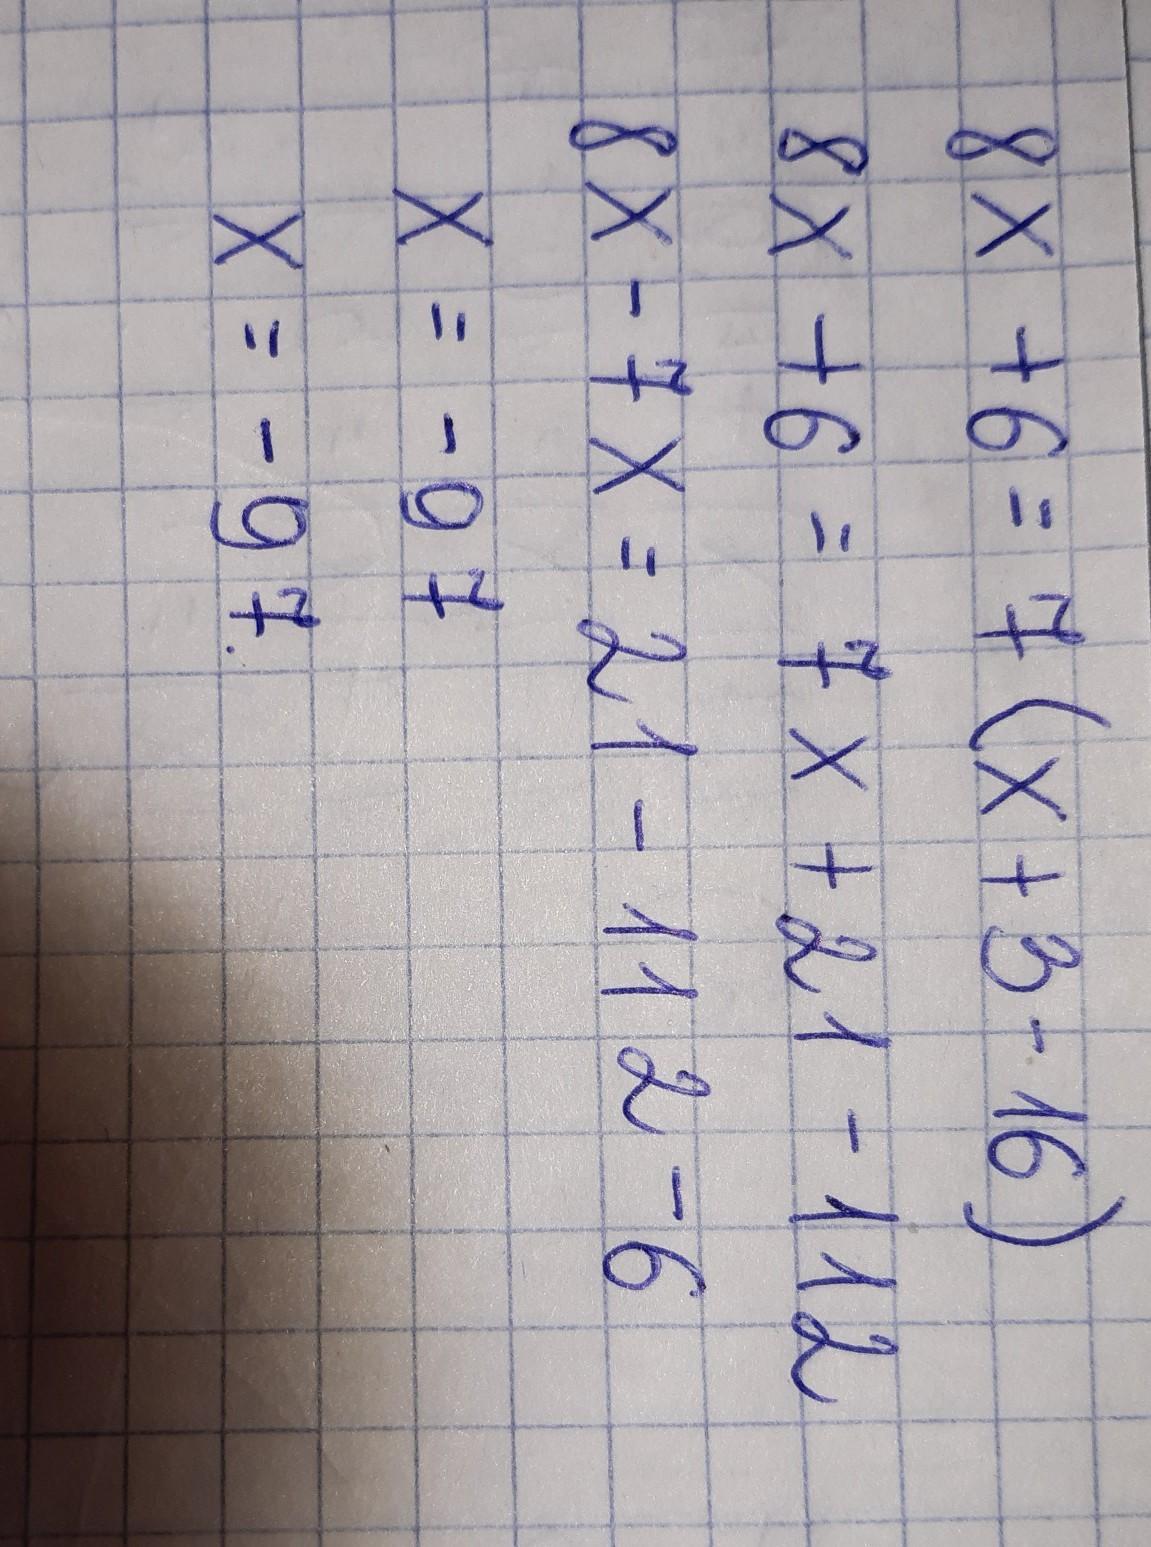 8x + 6 = 7 (x + 3 - 16)
8x + 6 = 7x + 21 - 112
8x - 7x = 21 - 112 - 6
x = - 97
x = - 97.